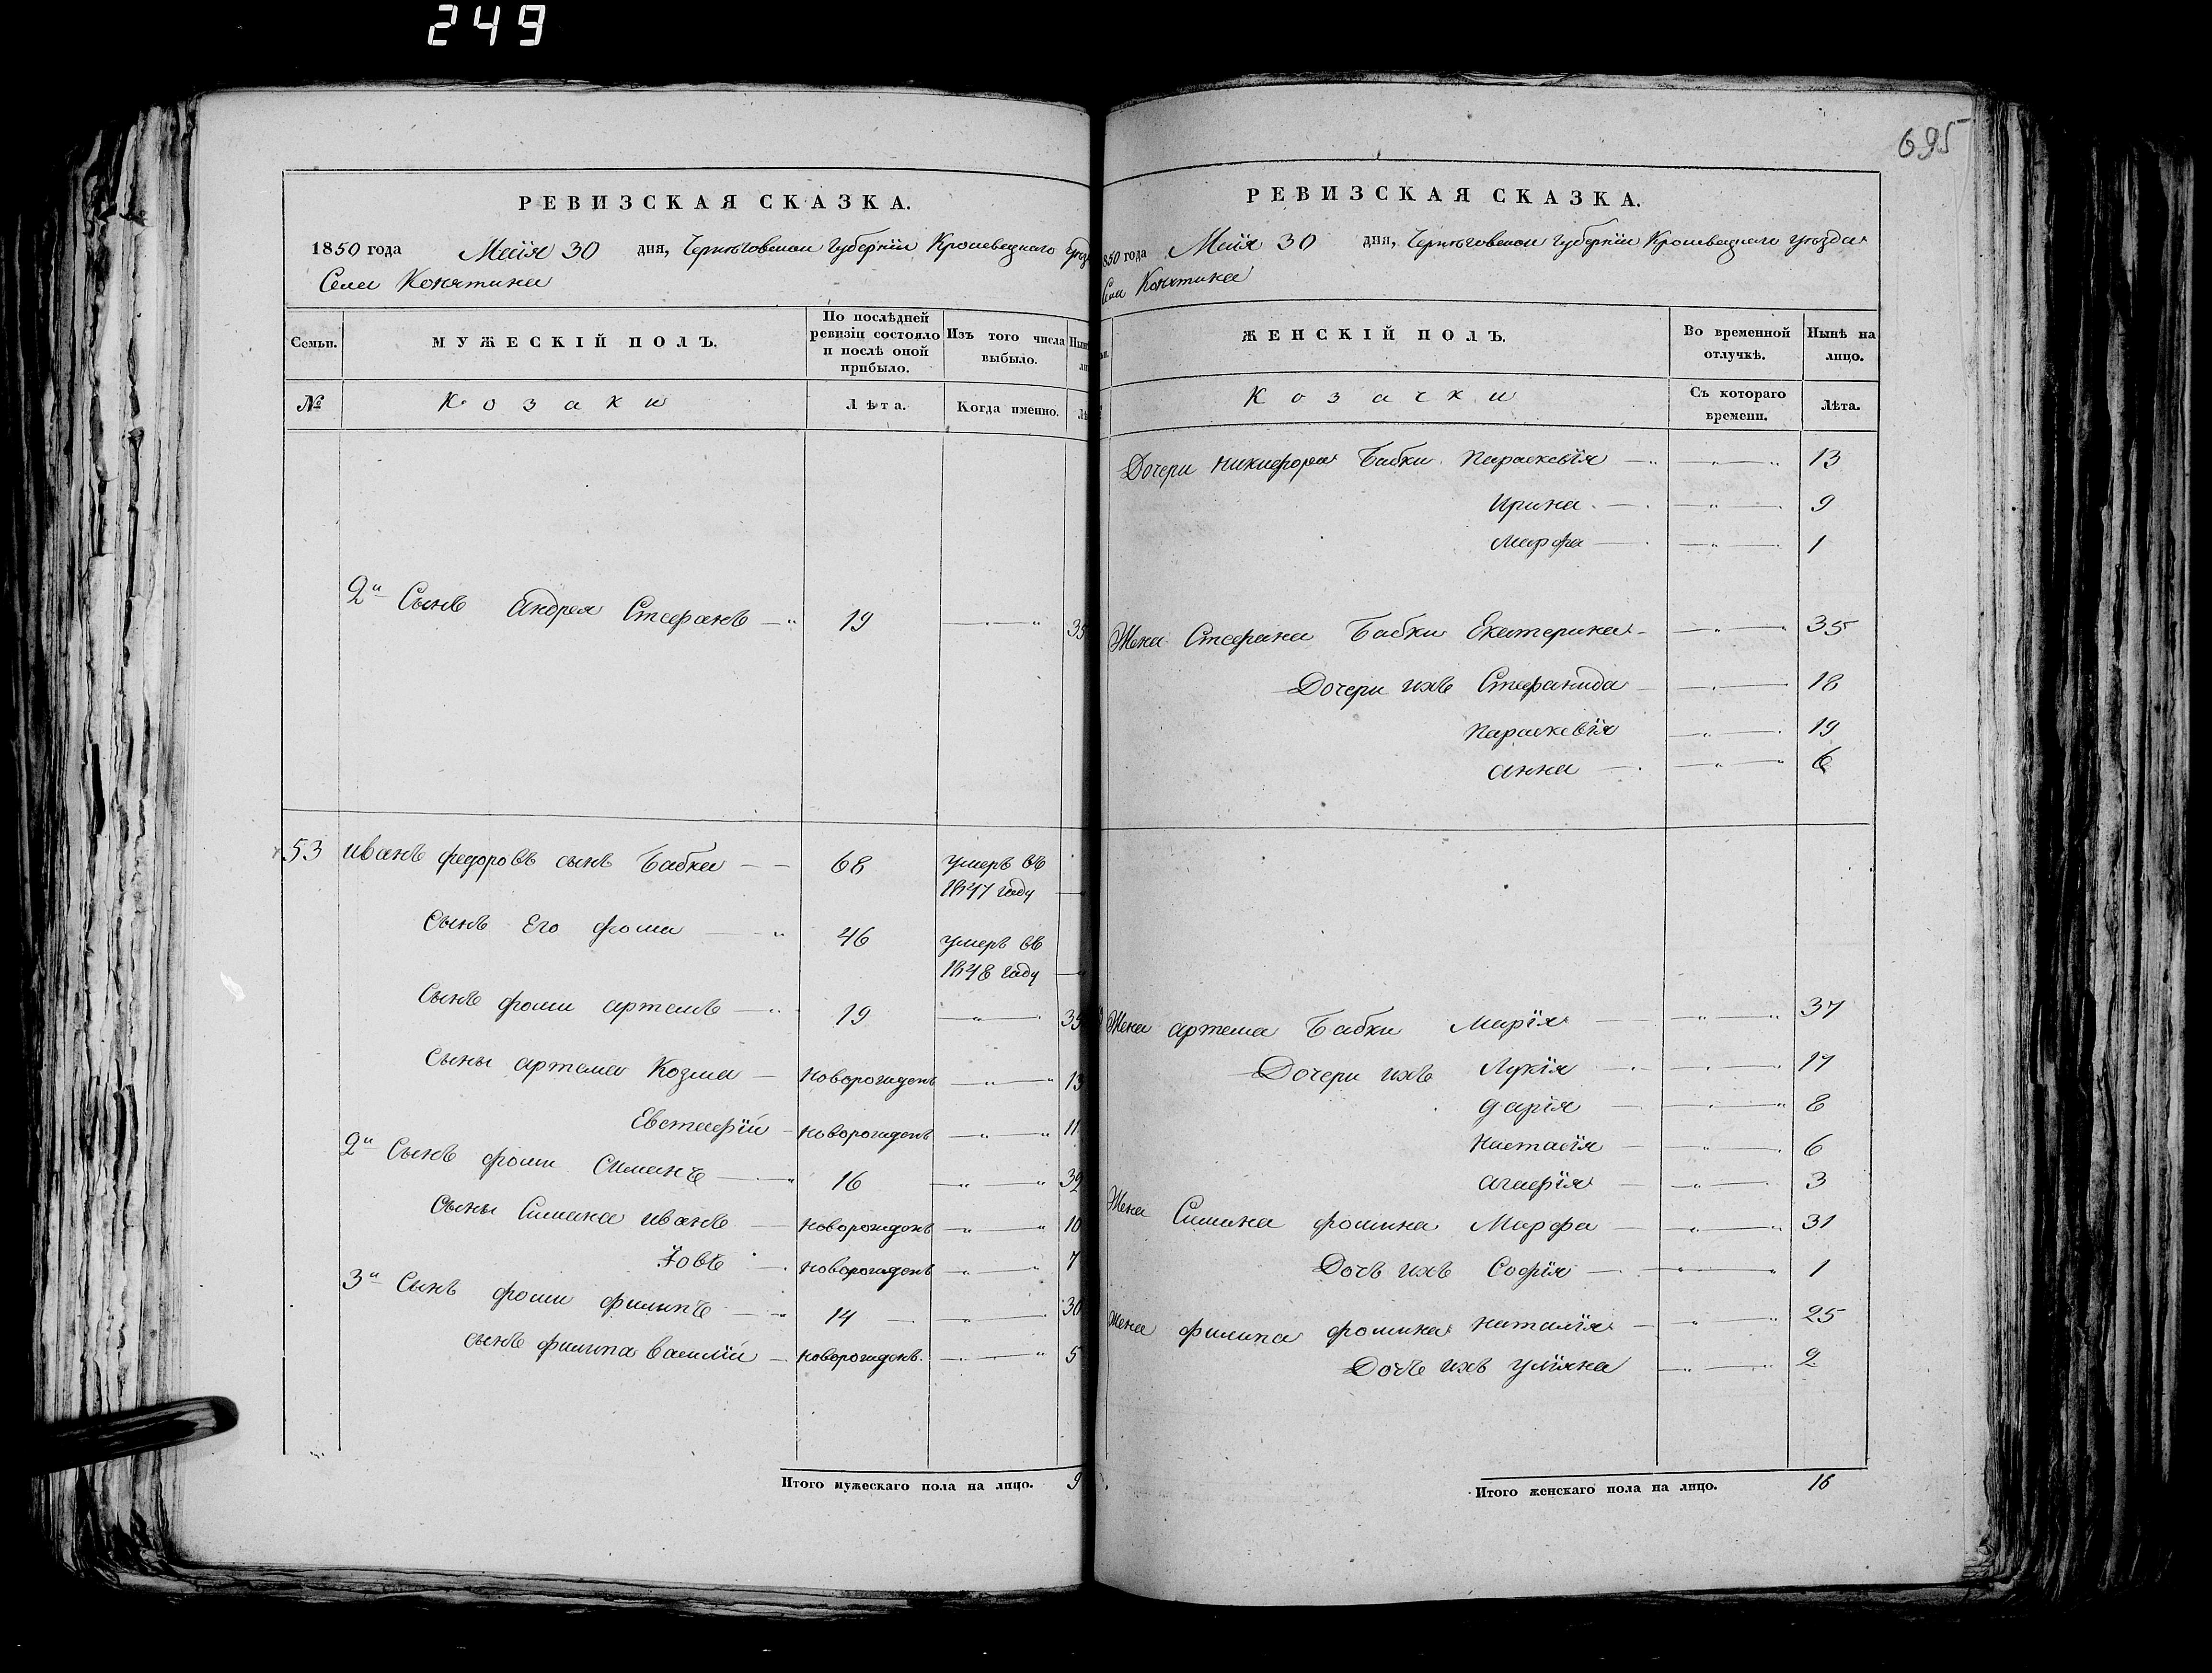 249
695
РЕВИЗСКАЯ СКАЗКА.
1850 года Маія 30 дня, Черниговской губерніи Кролевецкаго уезд
Села Конятина
Семьи. МУЖЕСКІЙ ПОЛЪ. По послѣдней ревизіи состояло и послѣ оной прибыло. Изъ того числа выбыло. Нынѣ
№ Козаки Лѣта. Когда именно. Лѣ
2й Сынъ Андрея Стефанъ — 19 — " 35
53 иванъ федоровъ сынъ Бабка — 68 умеръ въ
1847 году —
Сынъ Его фома — " 46 умеръ въ
1848 году —
Сынъ фомы артемъ — 19 — " 35
Сыны артема Козма — новорожденъ — " 13
Евстафій — новорожденъ — " 11
2й Сынъ фомы Симанъ — " 16 — " 32
Сыны Симана иванъ — новорожденъ — " 10
Іовъ — новорожденъ — " 7
3й Сынъ фомы филипъ — " 14 — " 30
сынъ филипа василій — новорожденъ. — " 5
Итого мужескаго пола на лицо. 9
РЕВИЗСКАЯ СКАЗКА.
850 года Маія 30 дня, Черниговской губерніи Кролевецкаго уезда
Села Конятина
ЖЕНСКІЙ ПОЛЪ. Во временной отлучкѣ. Нынѣ на лицо.
Козачки Съ котораго времени. Лѣта.
Дочери никифора Бабки Параскевія — " — " 13
Ирина — " — 9
Марфа — " — 1
Жена Стефана Бабки Екатерина — " — 35
Дочери ихъ Стефанида — 18
Параскевія — " — 19
анна — " — 6
Жена артема Бабки Марія — " — 37
Дочери ихъ Лукія — " — 17
дарія — " — 8
настасія — " — 6
агафія — " — 3
Жена Симана фомина Марфа — " — 31
Дочь ихъ Софія — " — 1
жена филипа фомина наталія — " — 25
Дочь ихъ уліяна — " — 2
Итого женскаго пола на лицо. 16